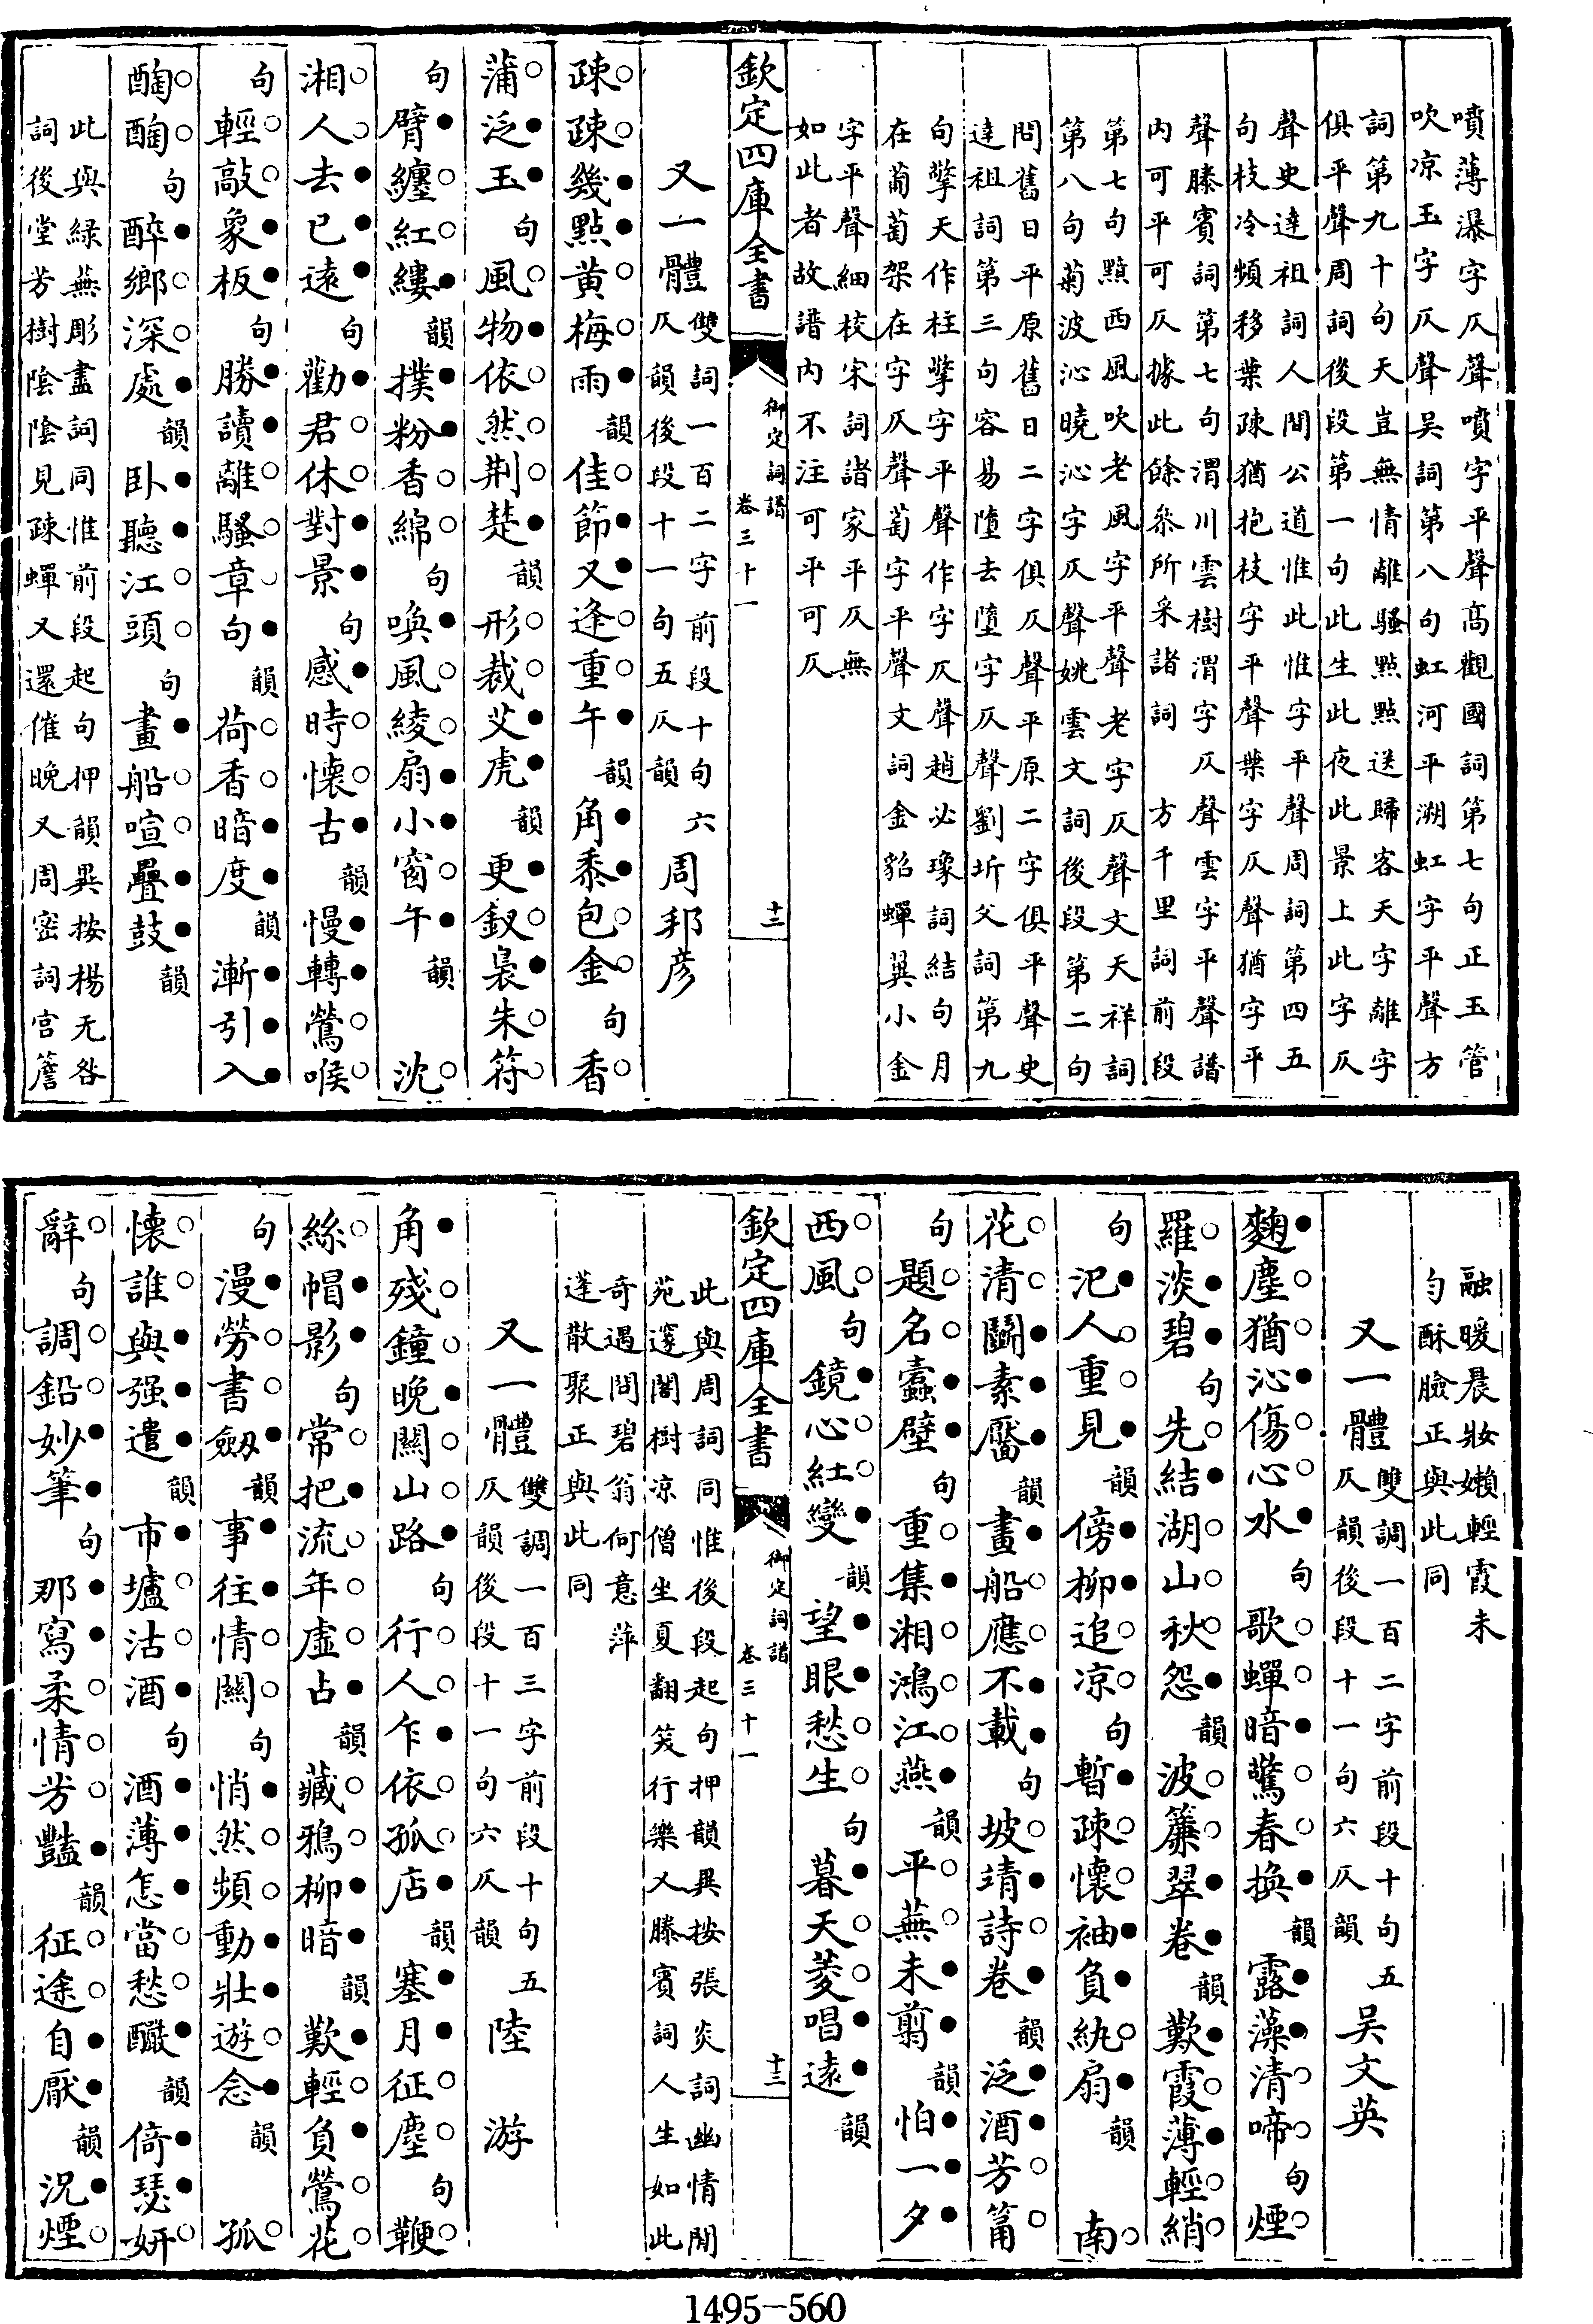 噴薄瀑字仄聲噴字平聲高觀國詞第七句正玉管
吹凉玉字仄聲吳詞第八句虹河平溯虹字平聲方
詞第九十句天豈無情離騷點點送歸客天字離字
俱平聲周詞後段第一句此生此夜此景上此字仄
聲史達祖詞人間公道惟此惟字平聲周詞第四五
句枝冷頻移葉疎猶抱枝字平聲葉字仄聲猶字平
聲滕賓詞第七句渭川雲樹渭字仄聲雲字平聲譜
內可平可仄據此餘叅所采諸詞 方千里詞前段
第七句黯西風吹老風字平聲老字仄聲文天祥詞
第八句菊波沁曉沁字仄聲姚雲文詞後段第二句
問舊日平原舊日二字俱仄聲平原二字俱平聲史
達祖詞第三句容易墮去墮字仄聲劉圻父詞第九
句擎天作柱擎字平聲作字仄聲趙必瑑詞結句月
在葡萄架在字仄聲萄字平聲文詞金貂蟬翼小金
字平聲細校宋詞諸家平仄無
如此者故譜內不注可平可仄
欽定四庫全書 御定詞譜 卷三十一 十二
又一體 雙詞一百二字前段十句六仄韻後段十一句五仄韻 周邦彦
疎疎幾點黃梅雨韻佳節又逢重午韻角黍包金句香
蒲泛玉句風物依然荆楚韻形裁艾虎韻更釵裊朱符
句臂纏紅縷韻撲粉香綿句喚風綾扇小窗午韻 沈
湘人去已遠句勸君休對景句感時懷古韻慢轉鶯喉
句輕敲象板句勝讀離騷章句韻荷香暗度韻漸引入
醄醄句醉鄉深處韻卧聽江頭句畫船喧疊鼓韻
此與緑蕪彫盡詞同惟前段起句押韻異按楊无咎
詞後堂芳樹陰陰見疎蟬又還催晚又周密詞宫簷
融暖晨妝嬾輕霞未
勻酥臉正與此同
又一體 雙調一百二字前段十句五仄韻後段十一句六仄韻 吴文英
麴塵猶沁傷心水句歌蟬暗驚春換韻露藻清啼句煙
羅淡碧句先結湖山秋怨韻波簾翠卷韻歎霞薄輕綃
句汜人重見韻傍柳追凉句暫疎懷袖負紈扇韻 南
花清鬭素靨韻畫船應不載句坡靖詩卷韻泛酒芳筩
句題名蠹壁句重集湘鴻江燕韻平蕪未翦韻怕一夕
西風句鏡心紅變韻望眼愁生句暮天菱唱遠韻
欽定四庫全書 御定詞譜 卷三十一 十三
此與周詞同惟後段起句押韻異按張炎詞幽情閒
苑邃闇樹凉僧坐夏翻笑行樂又滕賓詞人生如此
奇遇問碧翁何意萍
蓬散聚正與此同
又一體 雙調一百三字前段十句五仄韻後段十一句六仄韻 陸 游
角殘鐘晚關山路句行人乍依孤店韻塞月征塵句鞭
絲帽影句常把流年虛占韻藏鴉柳暗韻歎輕負鶯花
句漫勞書劒韻事往情關句悄然頻動壯遊念韻 孤
懷誰與强遣韻市壚沽酒句酒薄怎當愁釅韻倚瑟妍
辭句調鉛妙筆句那寫柔情芳豔韻征途自厭韻況煙
1495-560